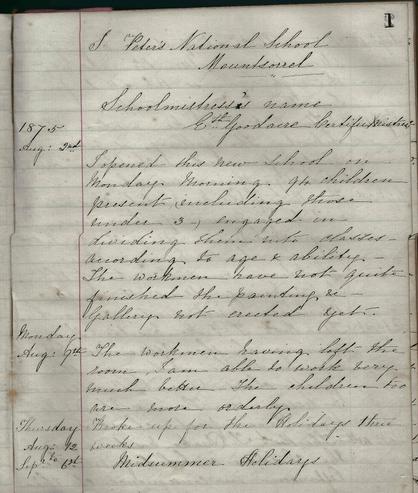 1
S Peter's National School
Mountsorrel
Schoolmistress's name
Eth Goodacre Certific Mistress
1875
Aug: 2nd
I opened this new School on
Monday Morning. 94 children
present, including those
under 3, engaged in
dividing them into classes
according to age & ability. -
The workmen have not quite
finished the painting & -
Gallery not erected yet. -
Monday
Aug: 9th
The workmen having left the
room I am able to work very
much better The children too
are more orderly.
Thursday
Aug: 12
to
Sep: 6th
Broke up for the Holidays three
weeks
Midsummer Holidays